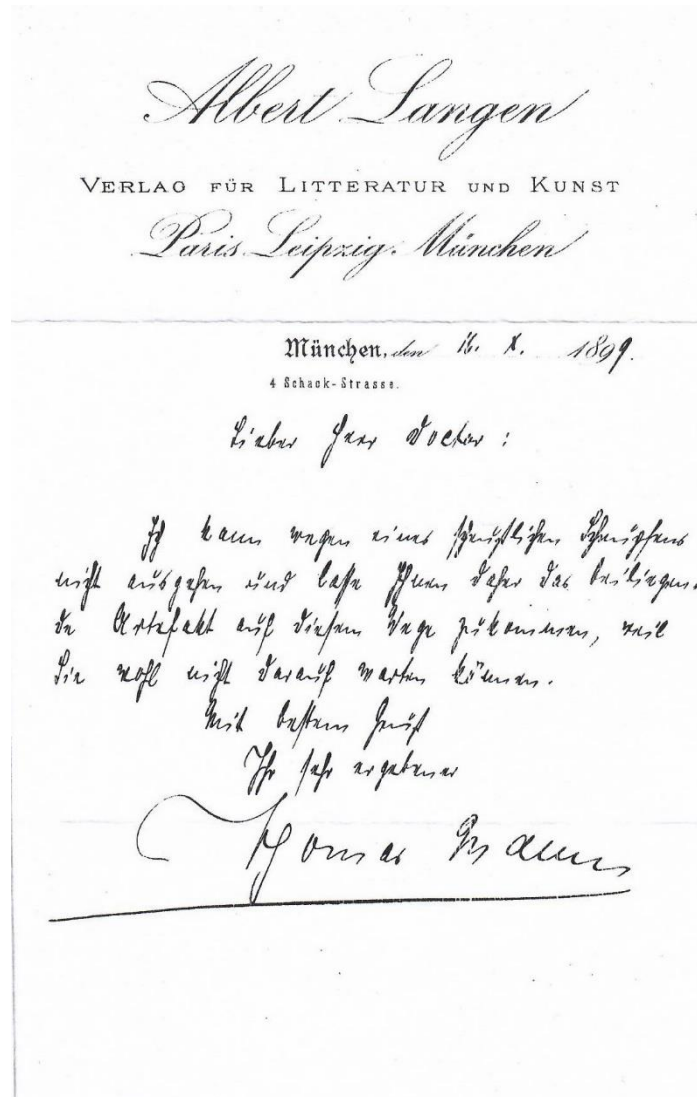 Albert Langen
VERLAG FÜR LITTERATUR UND KUNST
Paris Leipzig. München
München, den 16. X. 1899.
4 Schack-Strasse.
Lieber Herr Doctor:
Ich kann wegen eines scheußlichen Schnupfens
nicht ausgehen und lasse Ihnen daher das beiliegen-
de Artefakt auf diesem Wege zukommen, weil
Sie wohl nicht darauf warten können.
Mit bestem Gruß
Ihr sehr ergebener
Thomas Mann